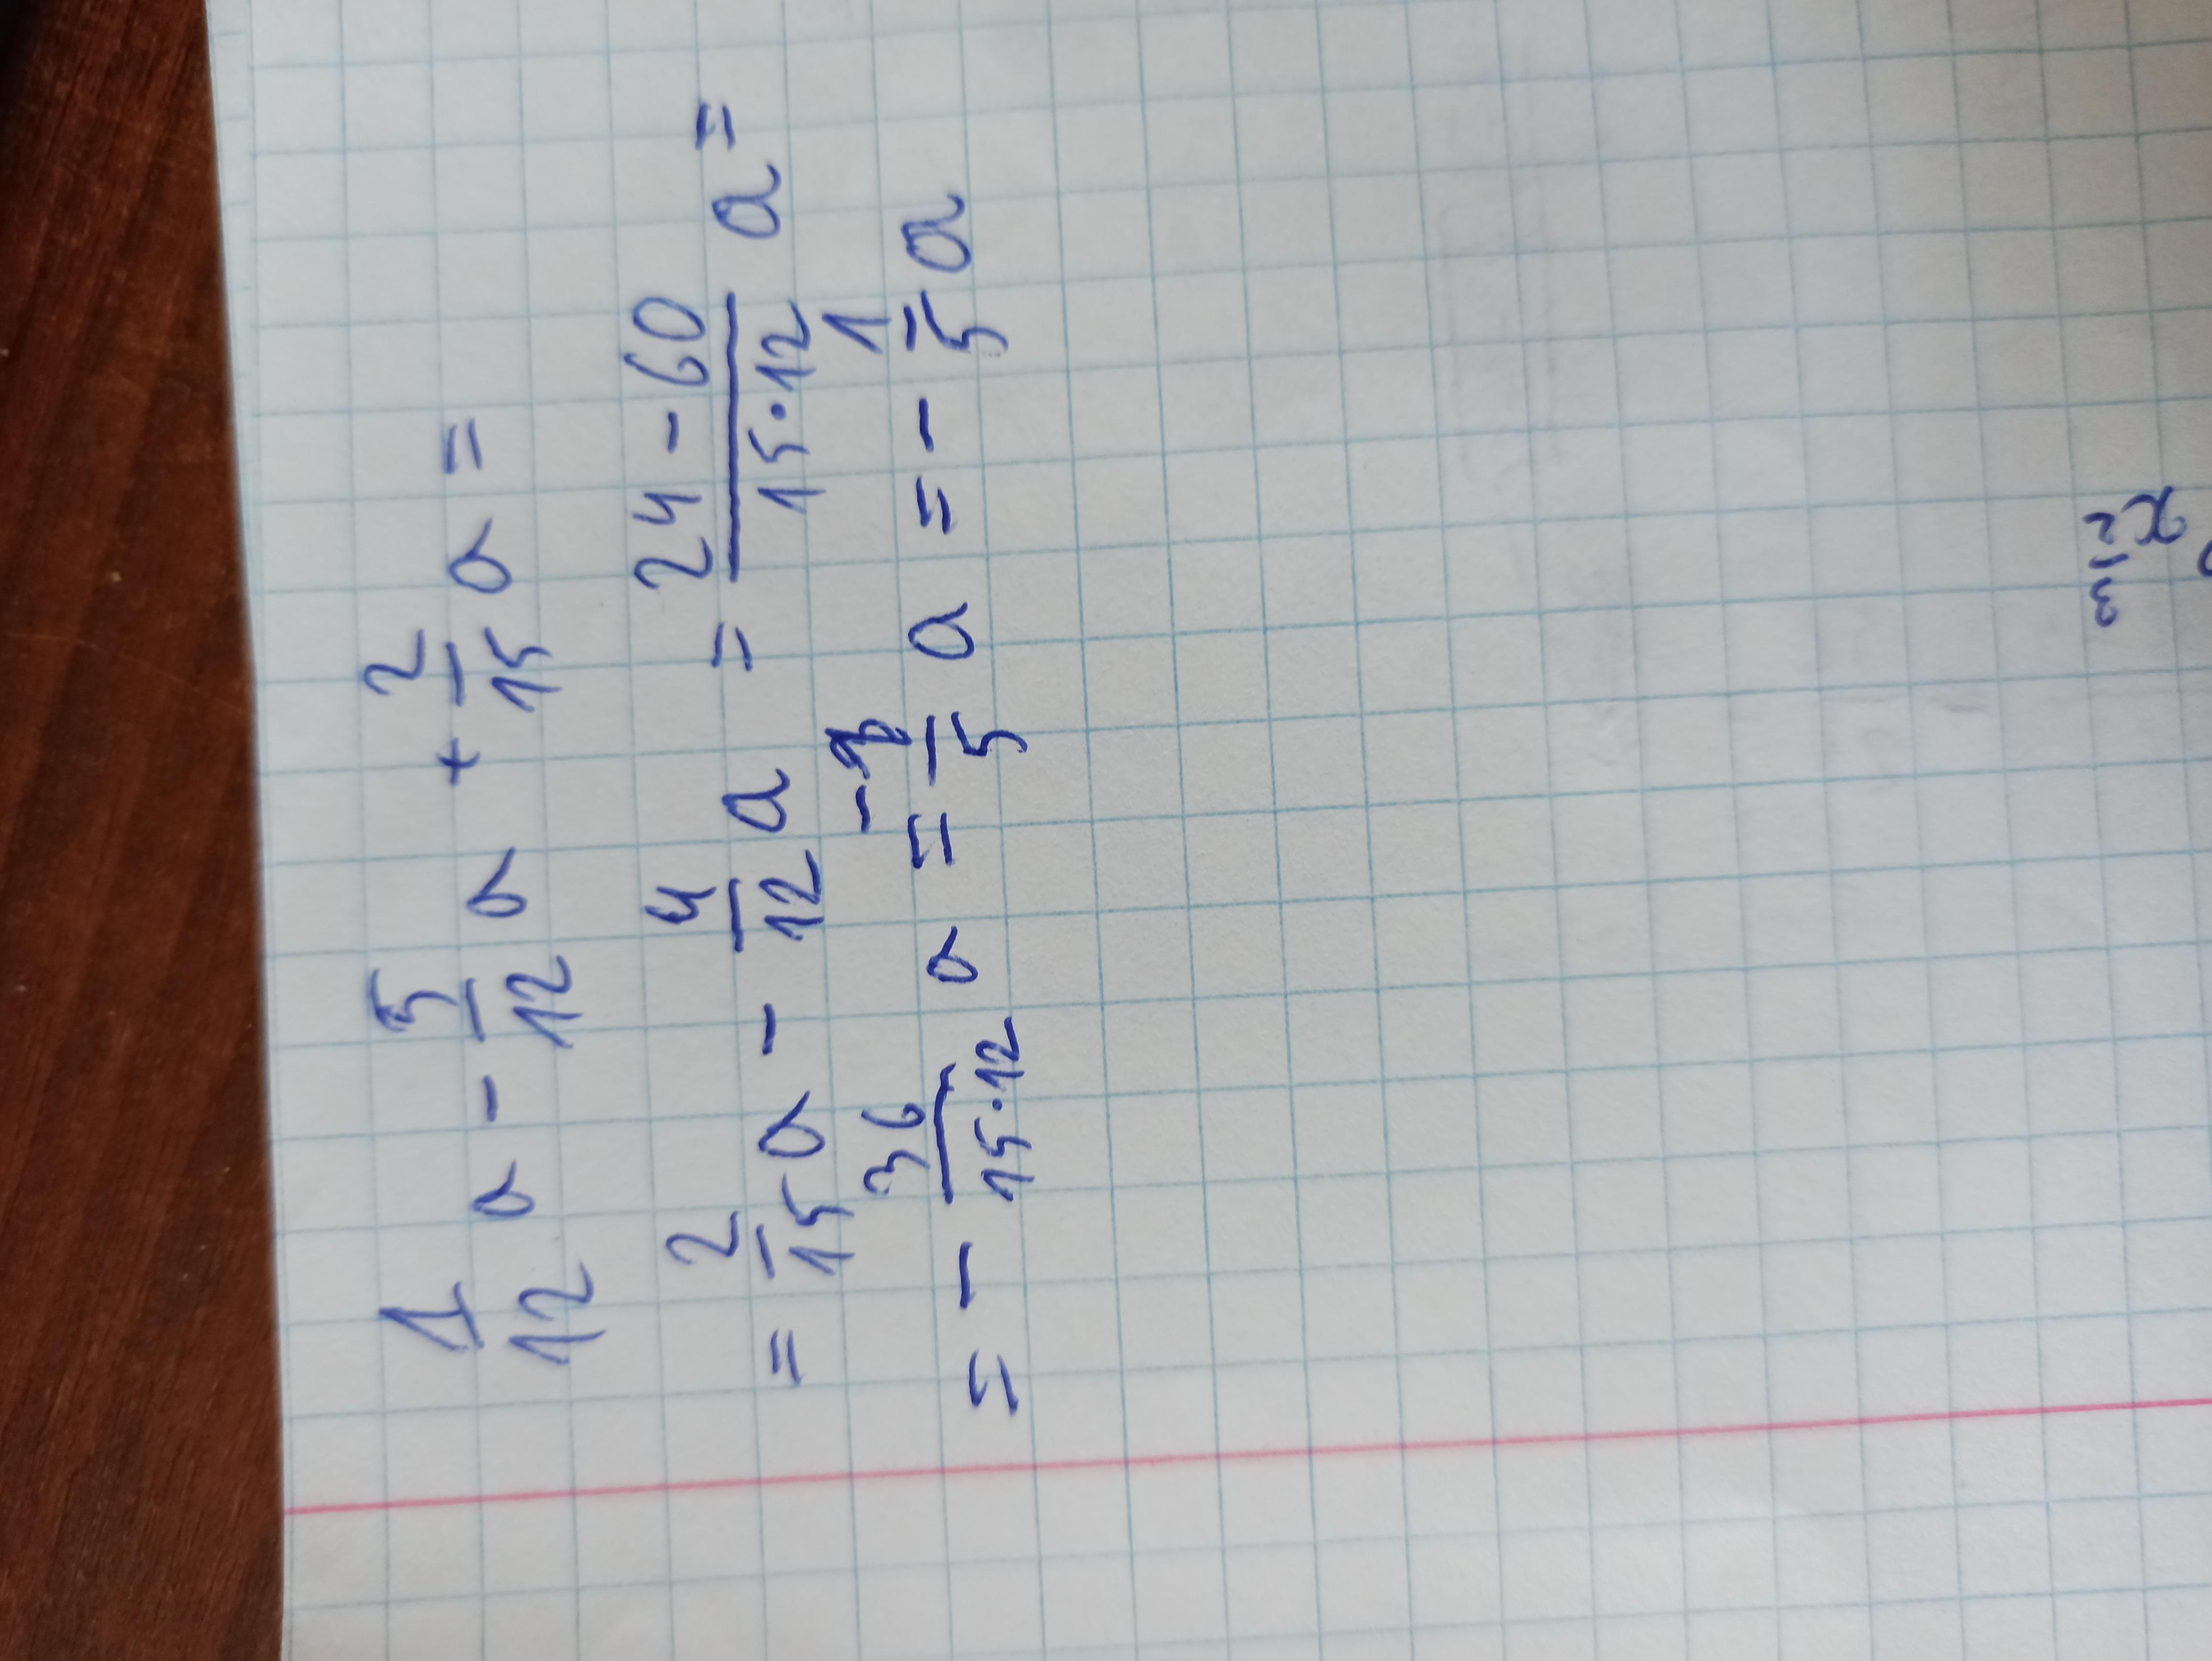 1/12 a - 5/12 a + 2/15 a =
= 2/15 a - 4/12 a = (24 - 60)/(15·12) a =
= - 36/(15·12) a = /5 a = - 1/5 a